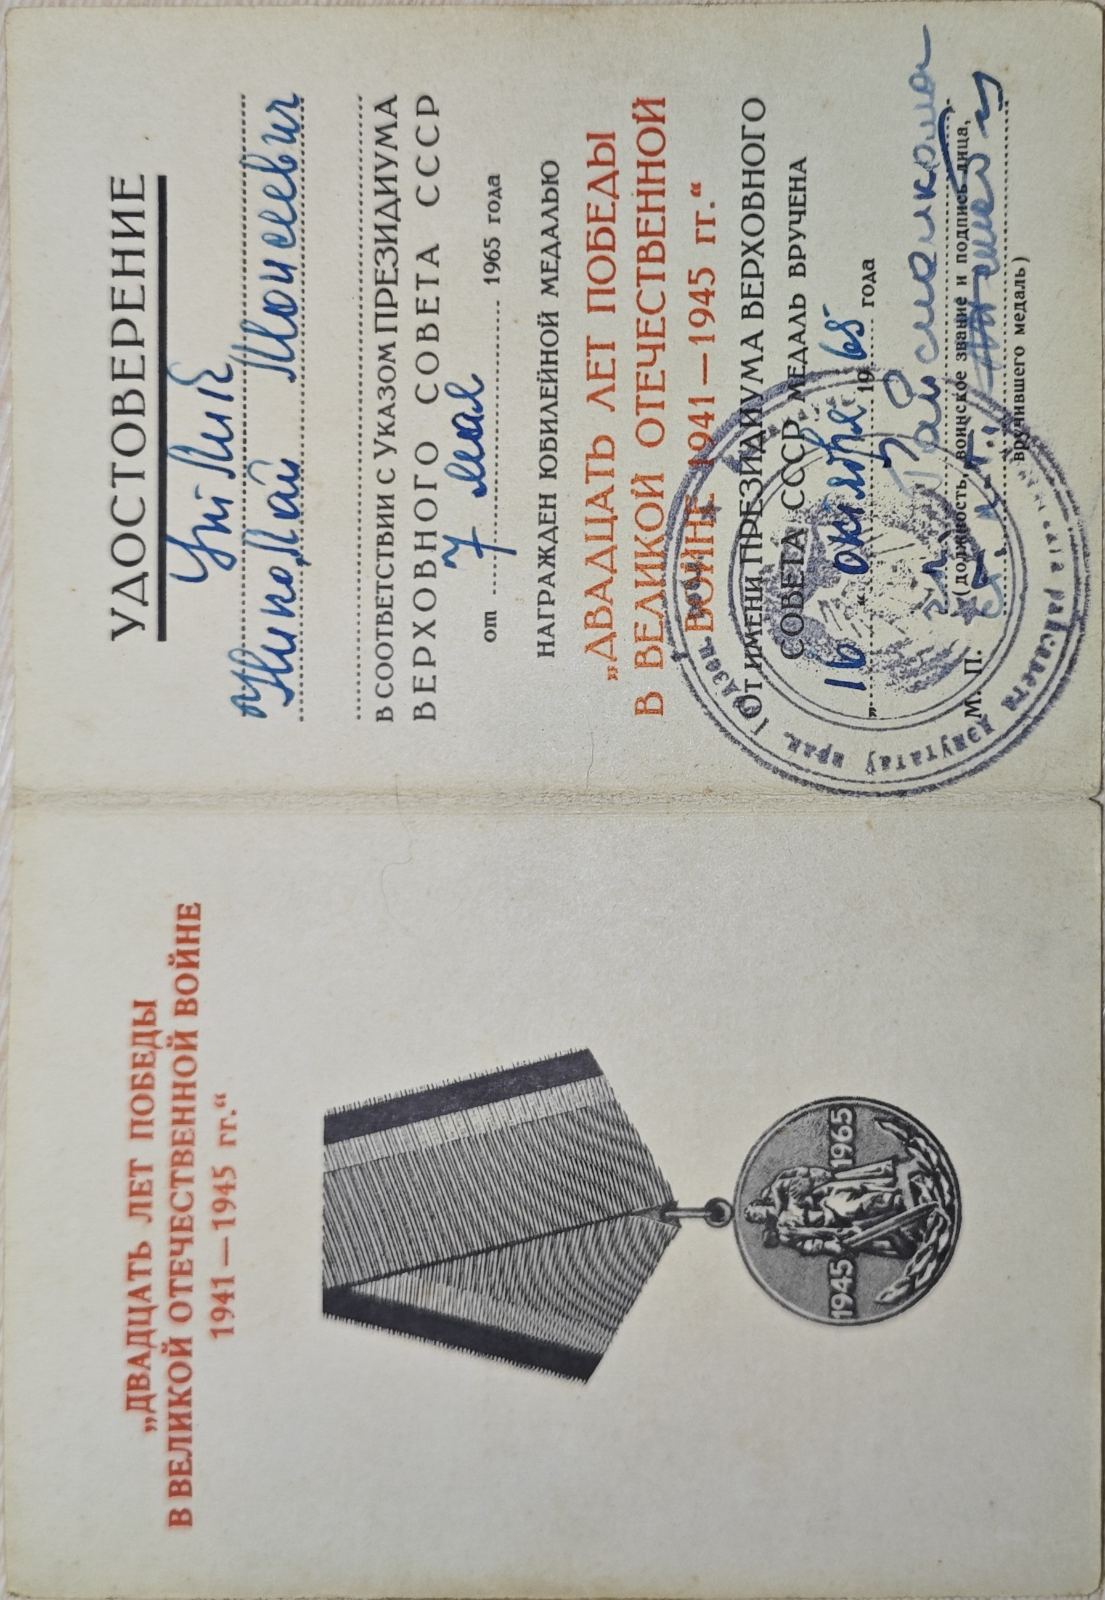 „ДВАДЦАТЬ ЛЕТ ПОБЕДЫ
В ВЕЛИКОЙ ОТЕЧЕСТВЕННОЙ ВОЙНЕ
1941—1945 гг.“
1945 1965
УДОСТОВЕРЕНИЕ
Николай Моисеевич
В СООТВЕТСТВИИ С УКАЗОМ ПРЕЗИДИУМА
ВЕРХОВНОГО СОВЕТА СССР
от 7 мая 1965 года
НАГРАЖДЕН ЮБИЛЕЙНОЙ МЕДАЛЬЮ
„ДВАДЦАТЬ ЛЕТ ПОБЕДЫ
В ВЕЛИКОЙ ОТЕЧЕСТВЕННОЙ
ВОЙНЕ 1941—1945 гг.“
ОТ ИМЕНИ ПРЕЗИДИУМА ВЕРХОВНОГО
СОВЕТА СССР МЕДАЛЬ ВРУЧЕНА
„16“ октября 1965 года
Райвоенкома
М. П. (должность, воинское звание и подпись лица,
вручившего медаль)
райсавета дэпутатаў прац